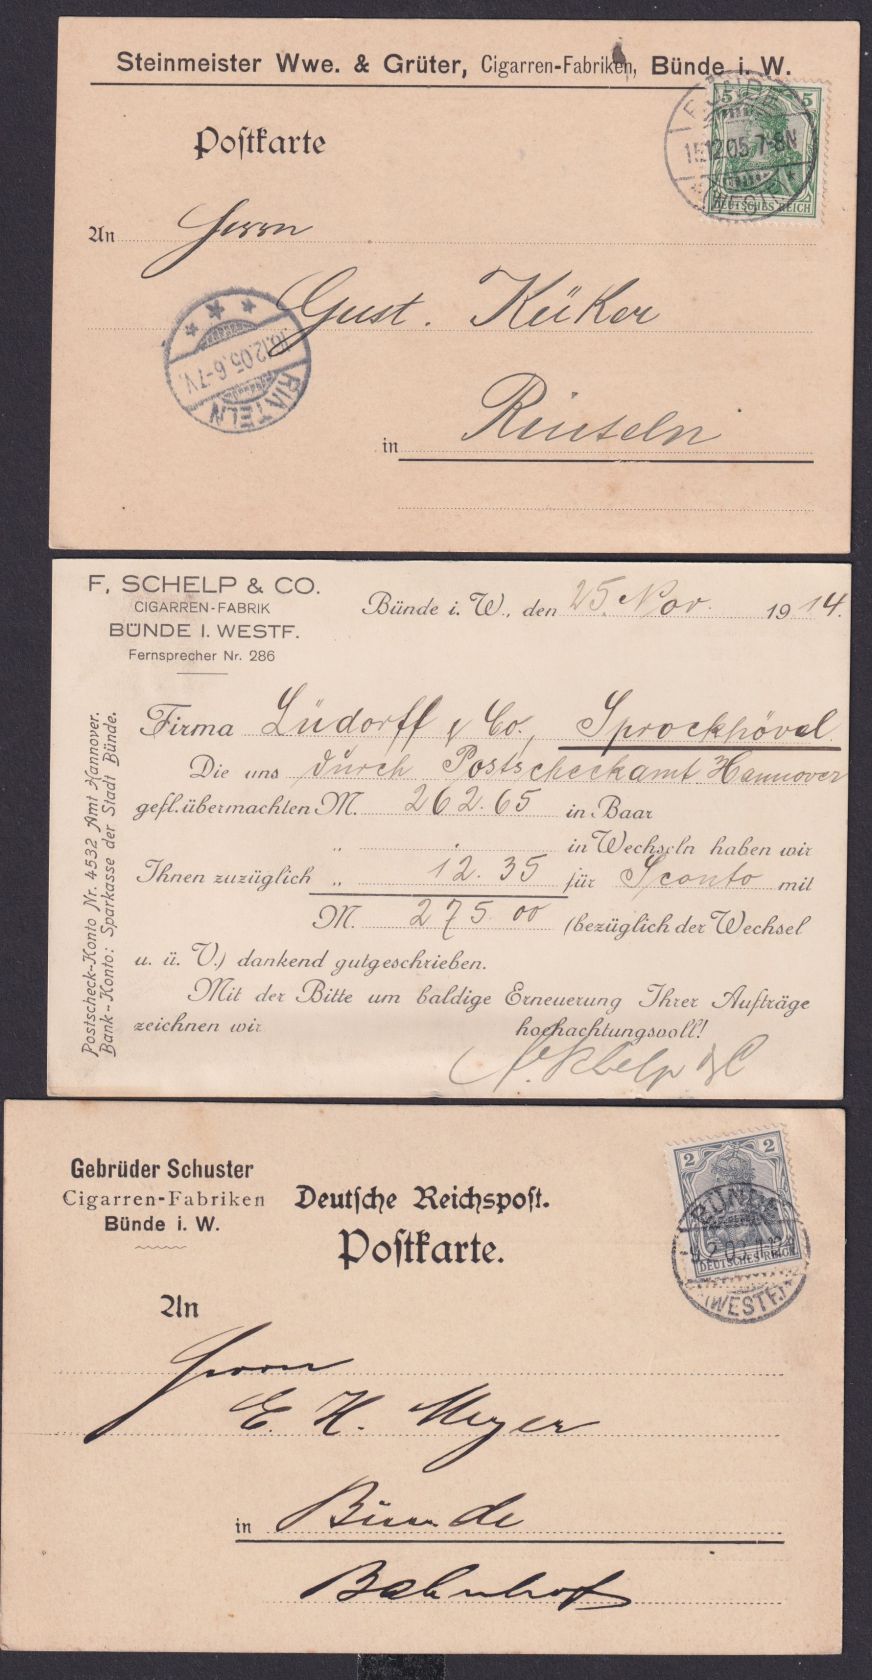 Steinmeister Wwe. & Grüter, Cigarren-Fabriken, Bünde i. W.
5 5
DEUTSCHES REICH
BÜNDE
15.12.05. 7-8N
(WESTF.)
Postkarte
An Herrn
Gust. Küker
in Rinteln
16.12.05. 6-7V.
RINTELN
F. SCHELP & CO.
CIGARREN-FABRIK
BÜNDE I. WESTF.
Fernsprecher Nr. 286
Bünde i. W., den 25. Nov. 1914.
Postscheck-Konto Nr. 4532 Amt Hannover.
Bank-Konto: Sparkasse der Stadt Bünde.
Firma Lüdorff & Co., Sprockhövel
Die uns durch Postscheckamt Hannover
gefl. übermachten M. 262.65 in Baar
" . in Wechseln haben wir
Ihnen zuzüglich " 12.35 für Sconto mit
M. 275.00 (bezüglich der Wechsel
u. ü. V.) dankend gutgeschrieben.
Mit der Bitte um baldige Erneuerung Ihrer Aufträge
zeichnen wir hochachtungsvoll!
F. Schelp & C
Gebrüder Schuster
Cigarren-Fabriken
Bünde i. W.
Deutsche Reichspost.
Postkarte.
2 2
DEUTSCHES REICH
BÜNDE
(WESTF.)
An
Herrn
E. H. Meyer
in Bünde
Bahnhof